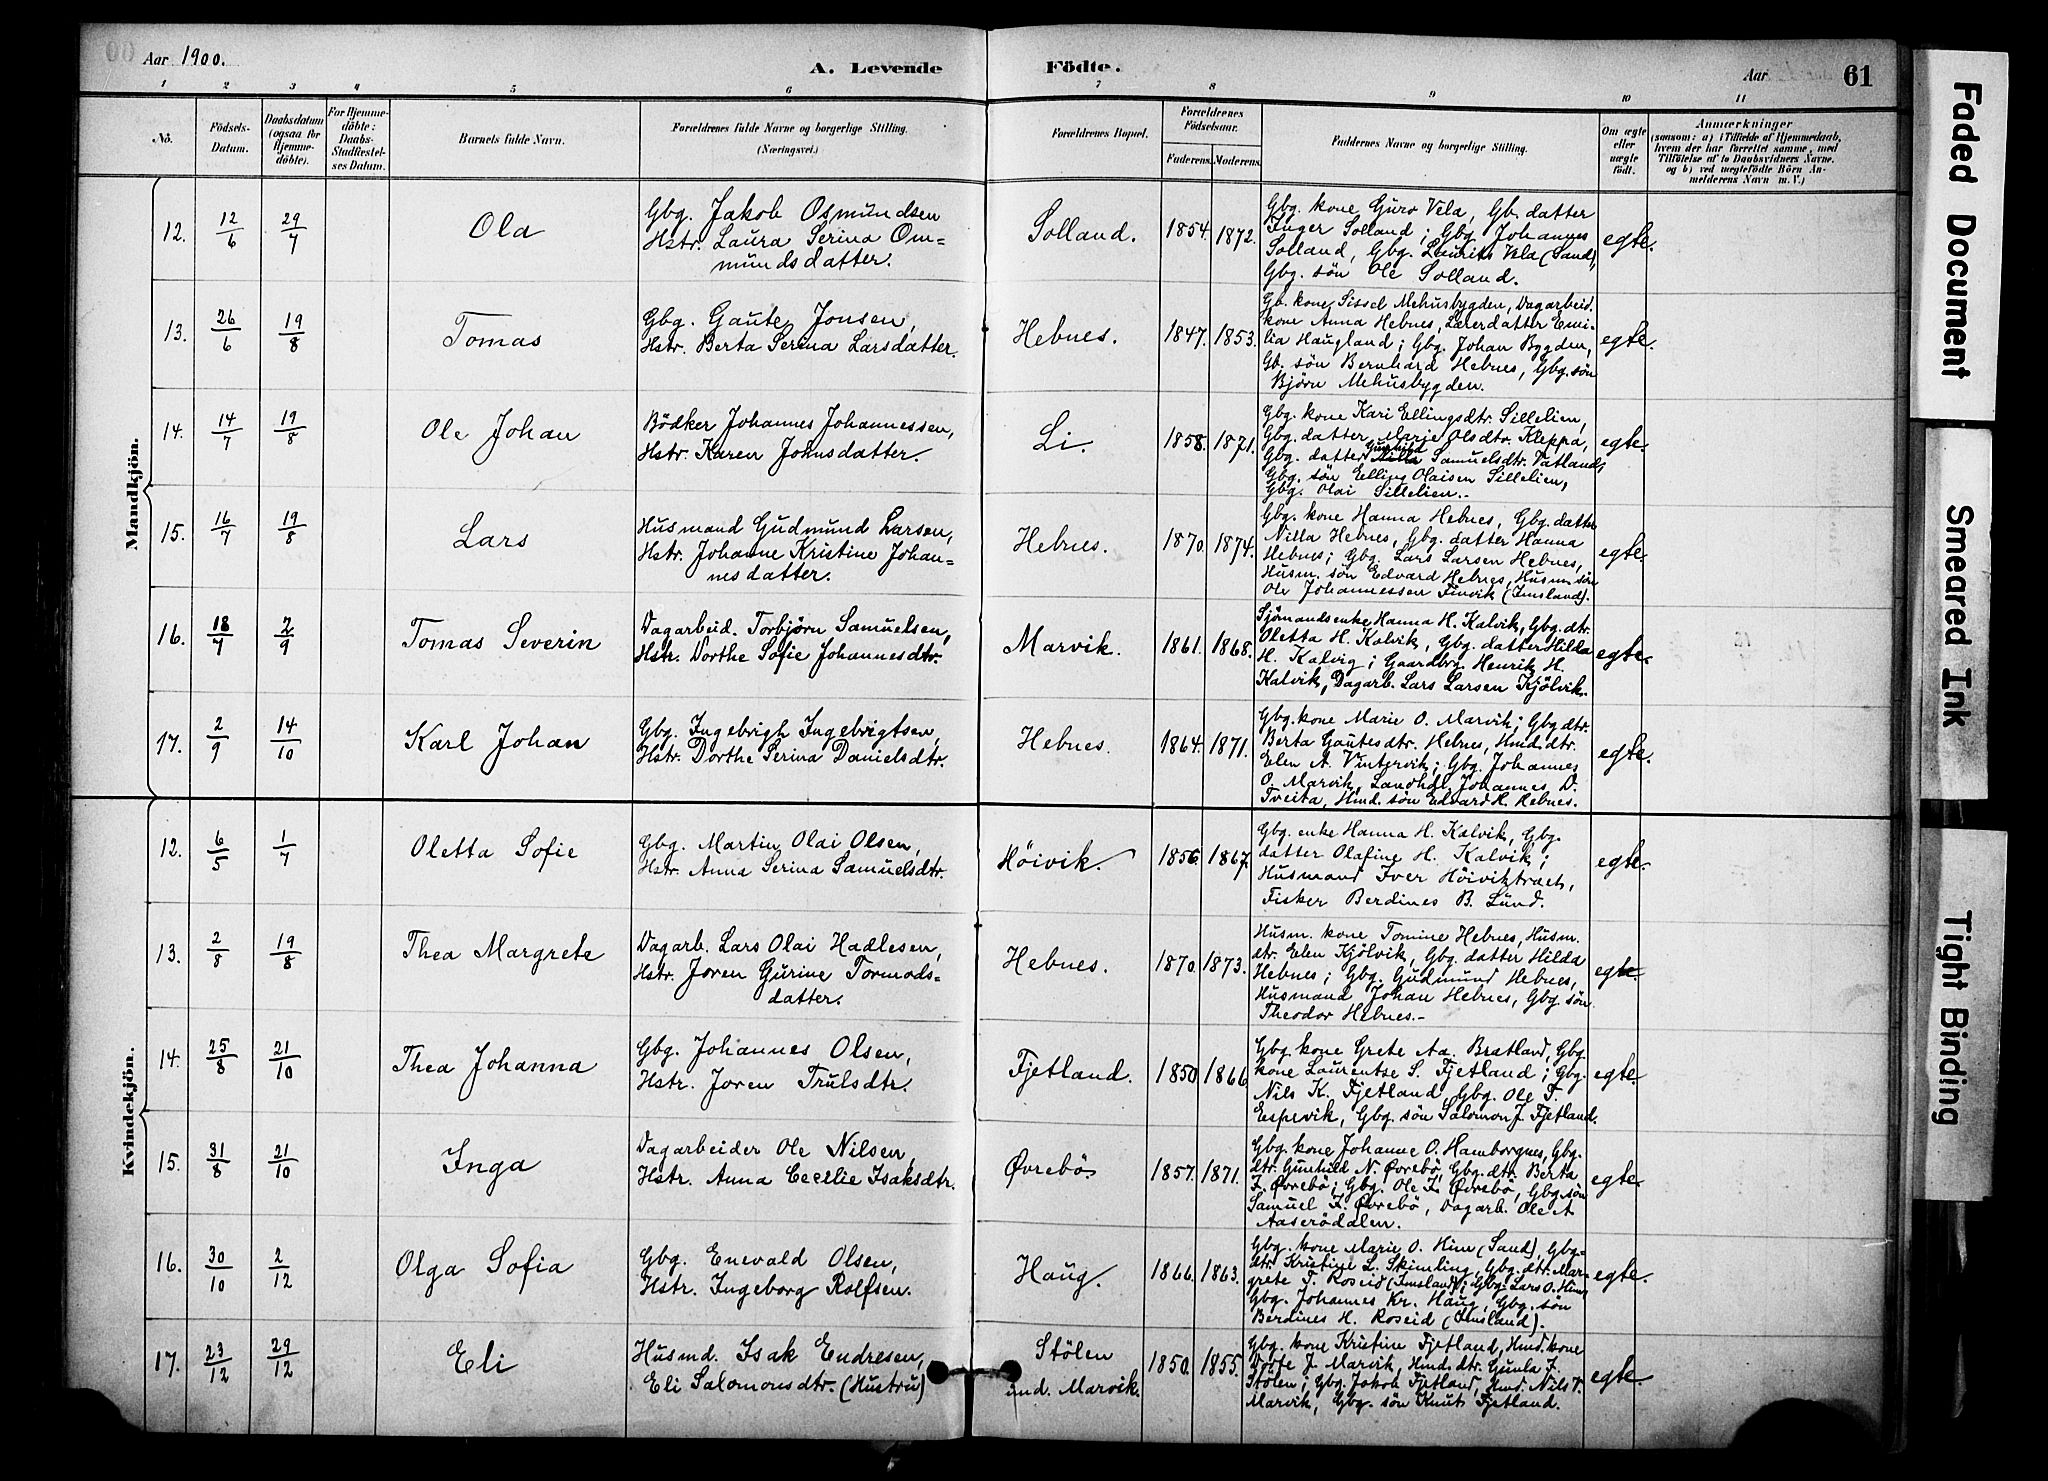 Aar 1900.
A. Levende Födte.
Aar
61
1 2 3 4 5 6 7 8 9 10 11
No.
Födsels-Datum.
Daabsdatum (ogsaa for Hjemmedöbte).
For Hjemmedöbte: Daabs-Stadfæstelses Datum.
Barnets fulde Navn.
Forældrenes fulde Navne og borgerlige Stilling. (Næringsvei.)
Forældrenes Bopæl.
Forældrenes Födselsaar.
Faderens. Moderens.
Faddernes Navne og borgerlige Stilling.
Om ægte eller uægte födt.
Anmærkninger
(saasom: a) i Tilfælde af Hjemmedaab,
hvem der har forrettet samme, med
Tilföielse af to Daabsvidners Navne.
og b) ved uægtefödte Börn An-
melderens Navn m. V.)
Mandkjön.
12. 12/6 29/7 Ola
Gbg. Jakob Osmundsen
Hstr. Laura Serina Om=
mundsdatter.
Solland. 1854. 1872.
Gbg. kone Guro Vela, Gb. datter
Inger Solland; Gbg. Johannes
Solland, Gbg. Laurits Vela (Sand),
Gbg. søn Ole Solland.
egte.
13. 26/6 19/8 Tomas
Gbg. Gaute Jonsen,
Hstr. Berta Serina Larsdatter.
Hebnes. 1847. 1853.
Gb. kone Sissel Mehusbygden, Dagarbeid.
kone Anna Hebnes, Lærerdatter Emi-
lia Haugland; Gbg. Johan Bygden,
Gb. søn Bernhard Hebnes, Gbg. søn
Bjørn Mehusbygden.
egte.
14. 14/7 19/8 Ole Johan
Bödker Johannes Johannessen,
Hstr. Karen Johnsdatter.
Li. 1858. 1871.
Gbg. kone Kari Ellingsdtr. Sillelien,
Gbg. datter Marje Olsdtr. Kleppa,
Gbg. datter Samuelsdtr. Vatland,
Gbg. søn Elling Olaisen Sillelien,
Gbg. Olai Sillelien.-
egte.
15. 16/7 19/8 Lars
Husmand Gudmund Larsen,
Hstr. Johanne Kristine Johan=
nesdatter.
Hebnes. 1870. 1874.
Gbg. kone Hanna Hebnes, Gbg. datter
Nilla Hebnes, Gbg. datter Hanna
Hebnes; Gbg. Lars Larsen Hebnes,
Husm. søn Edvard Hebnes, Husm. søn
Ole Johannessen Finvik (Imsland).
egte.
16. 18/7 2/9 Tomas Severin
Dagarbeid. Torbjørn Samuelsen,
Hstr. Dorthe Sofie Johannesdtr.
Marvik. 1861. 1868.
Sjømandsenke Hanna H. Kalvik, Gbg. dtr.
Oletta H. Kalvik, Gbg. datter Hilda
H. Kalvig; Gaardbrg. Henrik H.
Kalvik, Dagarb. Lars Larsen Kjölvik.
egte.
17. 2/9 14/10 Karl Johan
Gbg. Ingebrigh Ingebrigtsen,
Hstr. Dorthe Serina Danielsdtr.
Hebnes. 1864. 1871.
Gbg. kone Marie O. Marvik; Gbg. dtr.
Berta Gautesdtr. Hebnes, Hmd. dtr.
Elen A. Vintervik; Gbg. Johannes
O. Marvik, Landh. Johannes D.
Tveita, Hmd. søn Edvard H. Hebnes.
egte.
Kvindekjön.
12. 6/5 1/7 Oletta Sofie
Gbg. Martin Olai Olsen,
Hstr. Anna Serina Samuelsdtr.
Höivik. 1856. 1867.
Gbg. enke Hanna H. Kalvik, Gbg.
datter Olafine H. Kalvik;
Husmand Iver Höiviktræet,
Fisker Berdines B. Lund.
egte.
13. 2/8 19/8 Thea Margrete
Dagarb. Lars Olai Hadlesen,
Hstr. Joren Gurine Tormods-
datter.
Hebnes. 1870. 1873.
Husm. kone Tomine Hebnes, Husm.
dtr. Elen Kjölvik, Gbg. datter Hilda
Hebnes; Gbg. Gudmund Hebnes,
Husmand Johan Hebnes, Gbg. søn
Theodor Hebnes.-
egte.
14. 25/8 21/10 Thea Johanna
Gbg. Johannes Olsen,
Hstr. Joren Trulsdtr.
Fjetland. 1850 1866
Gbg. kone Grete Aa. Bratland, Gbg.
kone Laurentse S. Fjetland; Gbg.
Nils K. Fjetland, Gbg. Ole T.
Erpevik, Gbg. søn Salomon J. Fjetland.
egte.
15. 31/8 21/10 Inga
Dagarbeider Ole Nilsen,
Hstr. Anna Cecilie Isaksdtr.
Øvrebö. 1857. 1871.
Gbg. kone Johanne O. Hamborgnes, Gbg.
dtr. Gunhild N. Øvrebö, Gbg. dtr. Berta
F. Øvrebö; Gbg. Ole F. Øvrebö, Gbg. søn
Samuel F. Øvrebö, Dagarb. Ole A
Aaserödalen.
egte.
16. 30/10 2/12 Olga Sofia
Gbg. Enevald Olsen,
Hstr. Ingeborg Rolfsen.
Haug. 1866. 1863.
Gbg. kone Marie O. Him (Sand), Gbg-
dtr. Kristine L. Skimling, Gbg. dtr. Mar-
grete T. Roseid (Imsland); Gbg. Lars O. Him,
Gbg. Johannes Kr. Haug, Gbg. søn
Berdines H. Roseid (Imsland).
egte.
17. 23/12 29/12 Eli
Husmd. Isak Endresen,
Eli Salomonsdtr. (Hustru)
Stölen
und. Marvik. 1850. 1855.
Gbg. kone Kristine Fjetland, Hmd. kone
Dorte J. Marvik, Hmd. dtr. Gunla I.
Stölen; Gbg. Jakob Fjetland, Hmd. Nils T.
Marvik, Gbg. søn Knut Fjetland.
egte.
Faded Document
Smeared Ink
Tight Binding